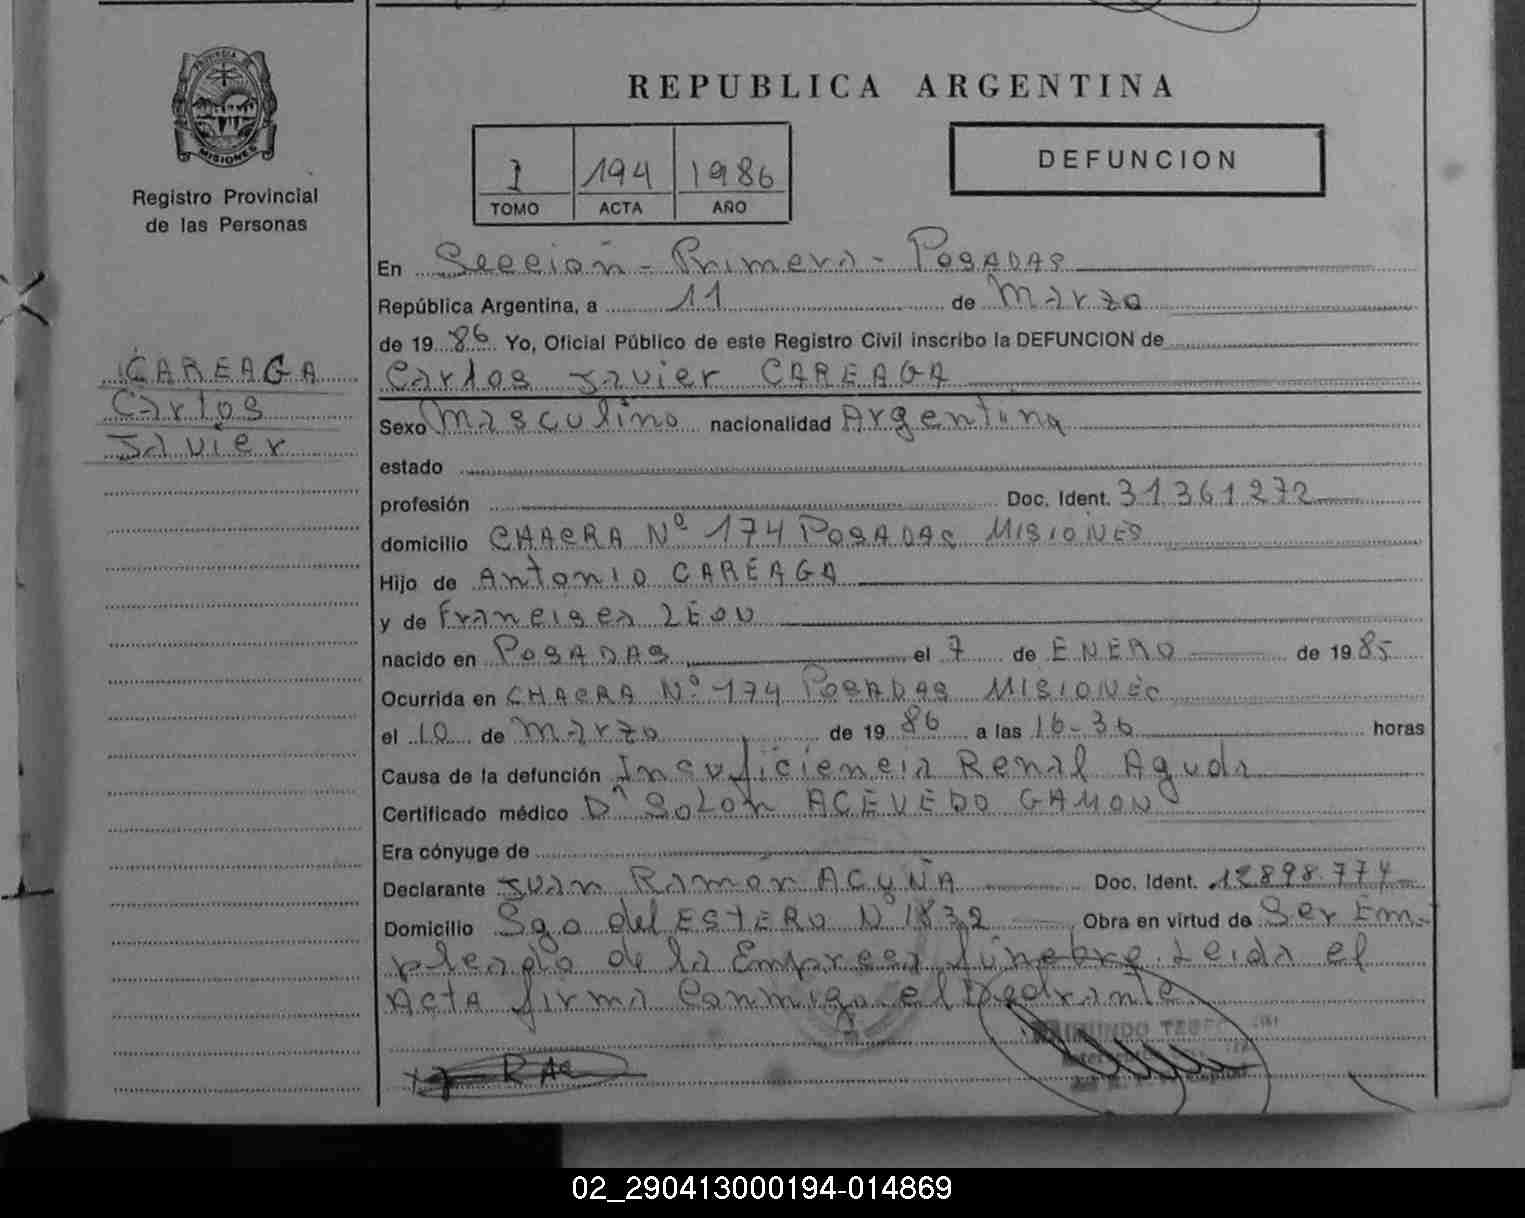 PROVINCIA DE
MISIONES
Registro Provincial
de las Personas
CAREAGA
Carlos
Javier
REPUBLICA ARGENTINA
I 194 1986
TOMO ACTA AÑO
DEFUNCION
En Sección - Primera - POSADAS
República Argentina, a 11 de Marzo
de 1986 Yo, Oficial Público de este Registro Civil inscribo la DEFUNCION de
Carlos Javier CAREAGA
Sexo Masculino nacionalidad Argentina
estado
profesión Doc. Ident. 31.361.272
domicilio CHACRA Nº 174 POSADAS MISIONES
Hijo de Antonio CAREAGA
y de Francisca LEON
nacido en POSADAS el 7 de ENERO de 1985
Ocurrida en CHACRA Nº 174 POSADAS MISIONES
el 10 de Marzo de 1986 a las 16-36 horas
Causa de la defunción Insuficiencia Renal Aguda
Certificado médico Dr SOLON ACEVEDO GAMON
Era cónyuge de
Declarante Juan Ramon ACUÑA Doc. Ident. 12898.774
Domicilio Sgo del ESTERO Nº 1832 Obra en virtud de Ser Em-
pleado de la Empresa fúnebre. Leida el
ACTA firma Conmigo el Declarante.
02_290413000194-014869